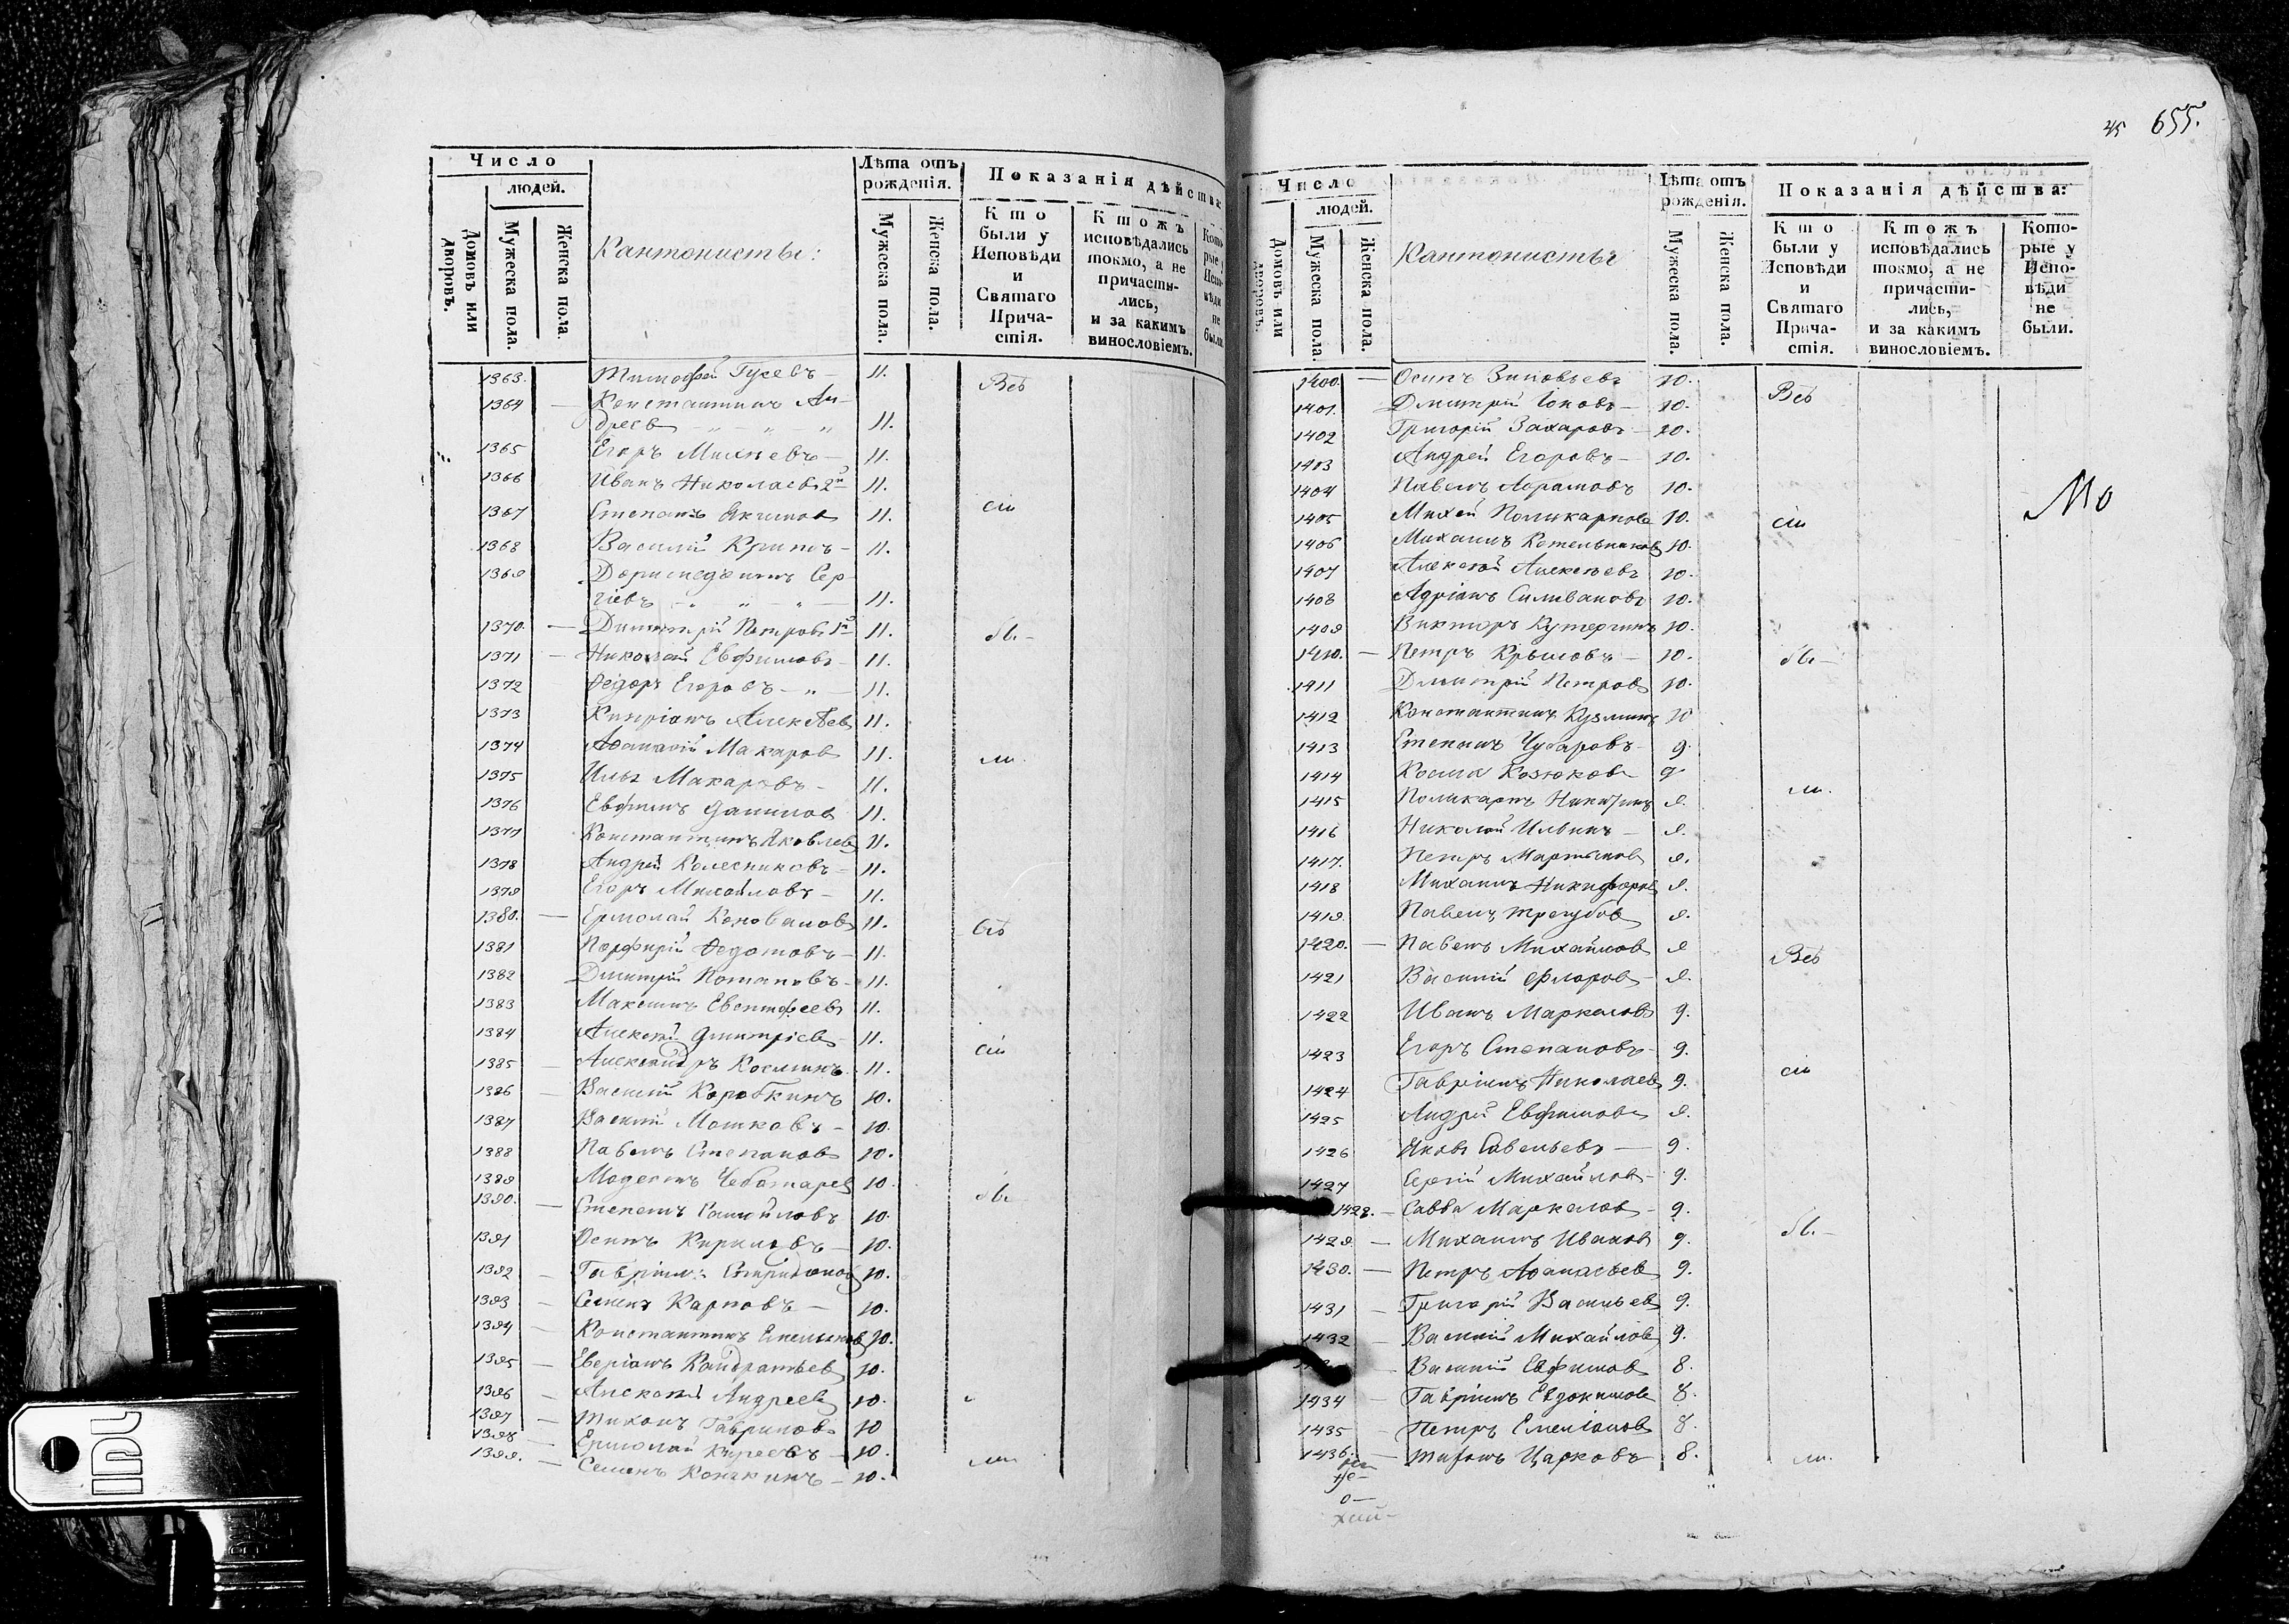 45 655.
Число
людей.
Домовъ или дворовъ.
Мужеска пола.
Женска пола.
Кантонисты:
Лѣта отъ рожденія.
Мужеска пола.
Женска пола.
Показанія дѣйства:
Кто были у Исповѣди и Святаго Причастія.
Ктожъ исповѣдались токмо, а не причастились, и за какимъ винословіемъ.
Которые у Исповѣди не были.
1363. Тимофей Гусевъ — 11.
1364 — Константинъ Ан-
дреевъ — 11.
1365 Егоръ Михѣевъ — 11.
1366 Иванъ Николаевъ 2й 11.
1367 Степанъ Акимовъ 11.
1368 Василій — 11.
1369 Доримедонтъ Сер-
гіевъ — 11.
1370. — Димитрій Петровъ 1й 11.
1371 — Николай Евфимовъ — 11.
1372 Ѳедоръ Егоровъ — 11.
1373 Кипріанъ Алексѣевъ 11.
1374 Аѳанасій Макаровъ 11.
1375 Илья Макаровъ — 11.
1376 Евфимъ Даниловъ 11.
1377 Константинъ Яковлевъ 11.
1378 Андрей Колесниковъ — 11.
1379 Егоръ Михайловъ — 11.
1380. — Ермолай Коноваловъ 11.
1381 Порфирій Ѳедотовъ — 11.
1382 Дмитрій Потаповъ — 11.
1383 Максимъ Евстифеевъ 11.
1384 Алексѣй Дмитріевъ — 11.
1385 Александръ Косминъ 11.
1386 Василій Коробкинъ 10.
1387 Василій Мошковъ — 10.
1388 Павелъ Степановъ 10.
1389 Модестъ Чеботаревъ 10.
1390. — Степанъ Самойловъ 10.
1391 Осипъ Кириловъ — 10.
1392 — Гавріилъ Спиридоновъ 10.
1393 — Семенъ Карповъ — 10.
1394 — Константинъ Емельяновъ 10.
1395 — Еверіанъ Кондратьевъ 10.
1396 — Алексѣй Андреевъ 10.
1397 — Тихонъ Гавриловъ 10
1398 — Ермолай Киреевъ — 10.
1399. — Семенъ Конакинъ — 10.
Всѣ
сіи
бы-
ли.
Всѣ
сіи
бы-
ли
Число
людей.
Домовъ или дворовъ.
Мужеска пола.
Женска пола.
Кантонисты
Лѣта отъ рожденія.
Мужеска пола.
Женска пола.
Показанія дѣйства:
Кто были у Исповѣди и Святаго Причастія.
Ктожъ исповѣдались токмо, а не причастились, и за какимъ винословіемъ.
Которые у Исповѣди не были.
1400. — Осипъ Зиновьевъ 10.
1401. Дмитрій Іоновъ — 10.
1402 Григорій Захаровъ — 10.
1403 Андрей Егоровъ — 10.
1404 Павелъ Абрамовъ 10.
1405 Михей Поликарповъ 10.
1406 Михаилъ Котельниковъ 10.
1407 Алексѣй Алексѣевъ 10.
1408 Адріанъ Силивановъ 10.
1409 Викторъ Кутергинъ 10.
1410. — Петръ Крыловъ — 10.
1411 Дмитрій Петровъ 10.
1412 Константинъ Кузминъ 10
1413 Степанъ Чубаровъ — 9.
1414 Косма Козюковъ 9
1415 Поликарпъ Никитинъ 9.
1416 Николай Ильинъ — 9.
1417. Петръ Мартыновъ 9.
1418 Михаилъ Никифоровъ 9.
1419. Павелъ Трегубовъ 9.
1420. — Павелъ Михайловъ 9
1421 Василій Флоровъ — 9.
1422 Иванъ Маркеловъ 9.
1423 Егоръ Степановъ — 9.
1424 Гавріилъ Николаевъ 9.
1425 Андрей Евфимовъ 9.
1426 Яковъ Савельевъ — 9.
1427 Сергій Михайловъ — 9.
1428. — Савва Маркеловъ — 9.
1429 — Михаилъ Ивановъ 9.
1430. — Петръ Аѳанасьевъ 9.
1431 — Григорій Васильевъ 9.
1432 — Василій Михайловъ 9.
— Василій Евфимовъ 8.
1434 — Гавріилъ Евдокимовъ 8.
1435 — Петръ Емеліановъ 8.
1436. — Тихонъ Царковъ — 8.
Всѣ
сіи
бы-
ли.
Всѣ
сіи
бы-
ли.